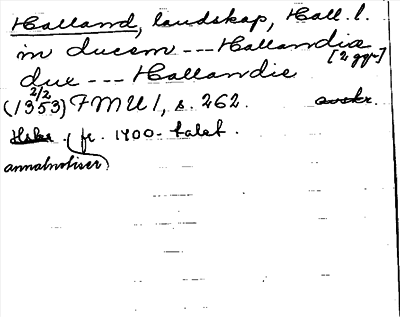 Halland, landskap, Hall. l.
in ducem --- Hallandiæ
[2 ggr]
due --- Hallandie
2/2
(1353) FMU 1, s. 262. avskr.
Hskr. (fr. 1400-talet.
annalnotiser)